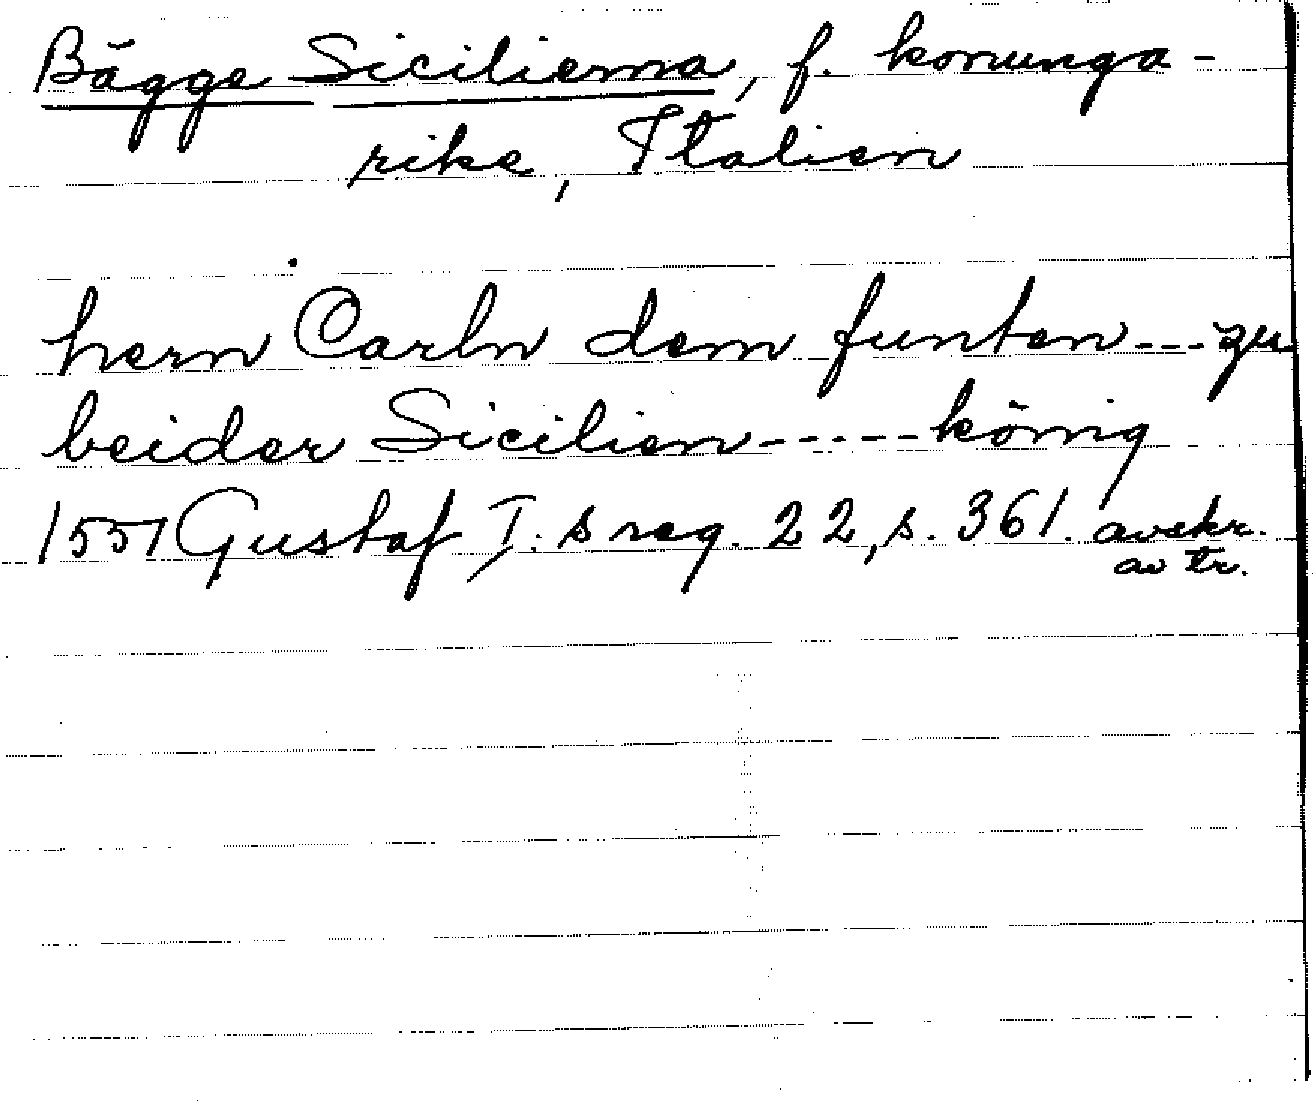 Bägge Sicilierna, f. konunga-
rike, Italien
hern Carln dem funten --- zu
beider Sicilien ----- könig
1551 Gustaf I:s reg. 22, s. 361. avskr.
av tr.